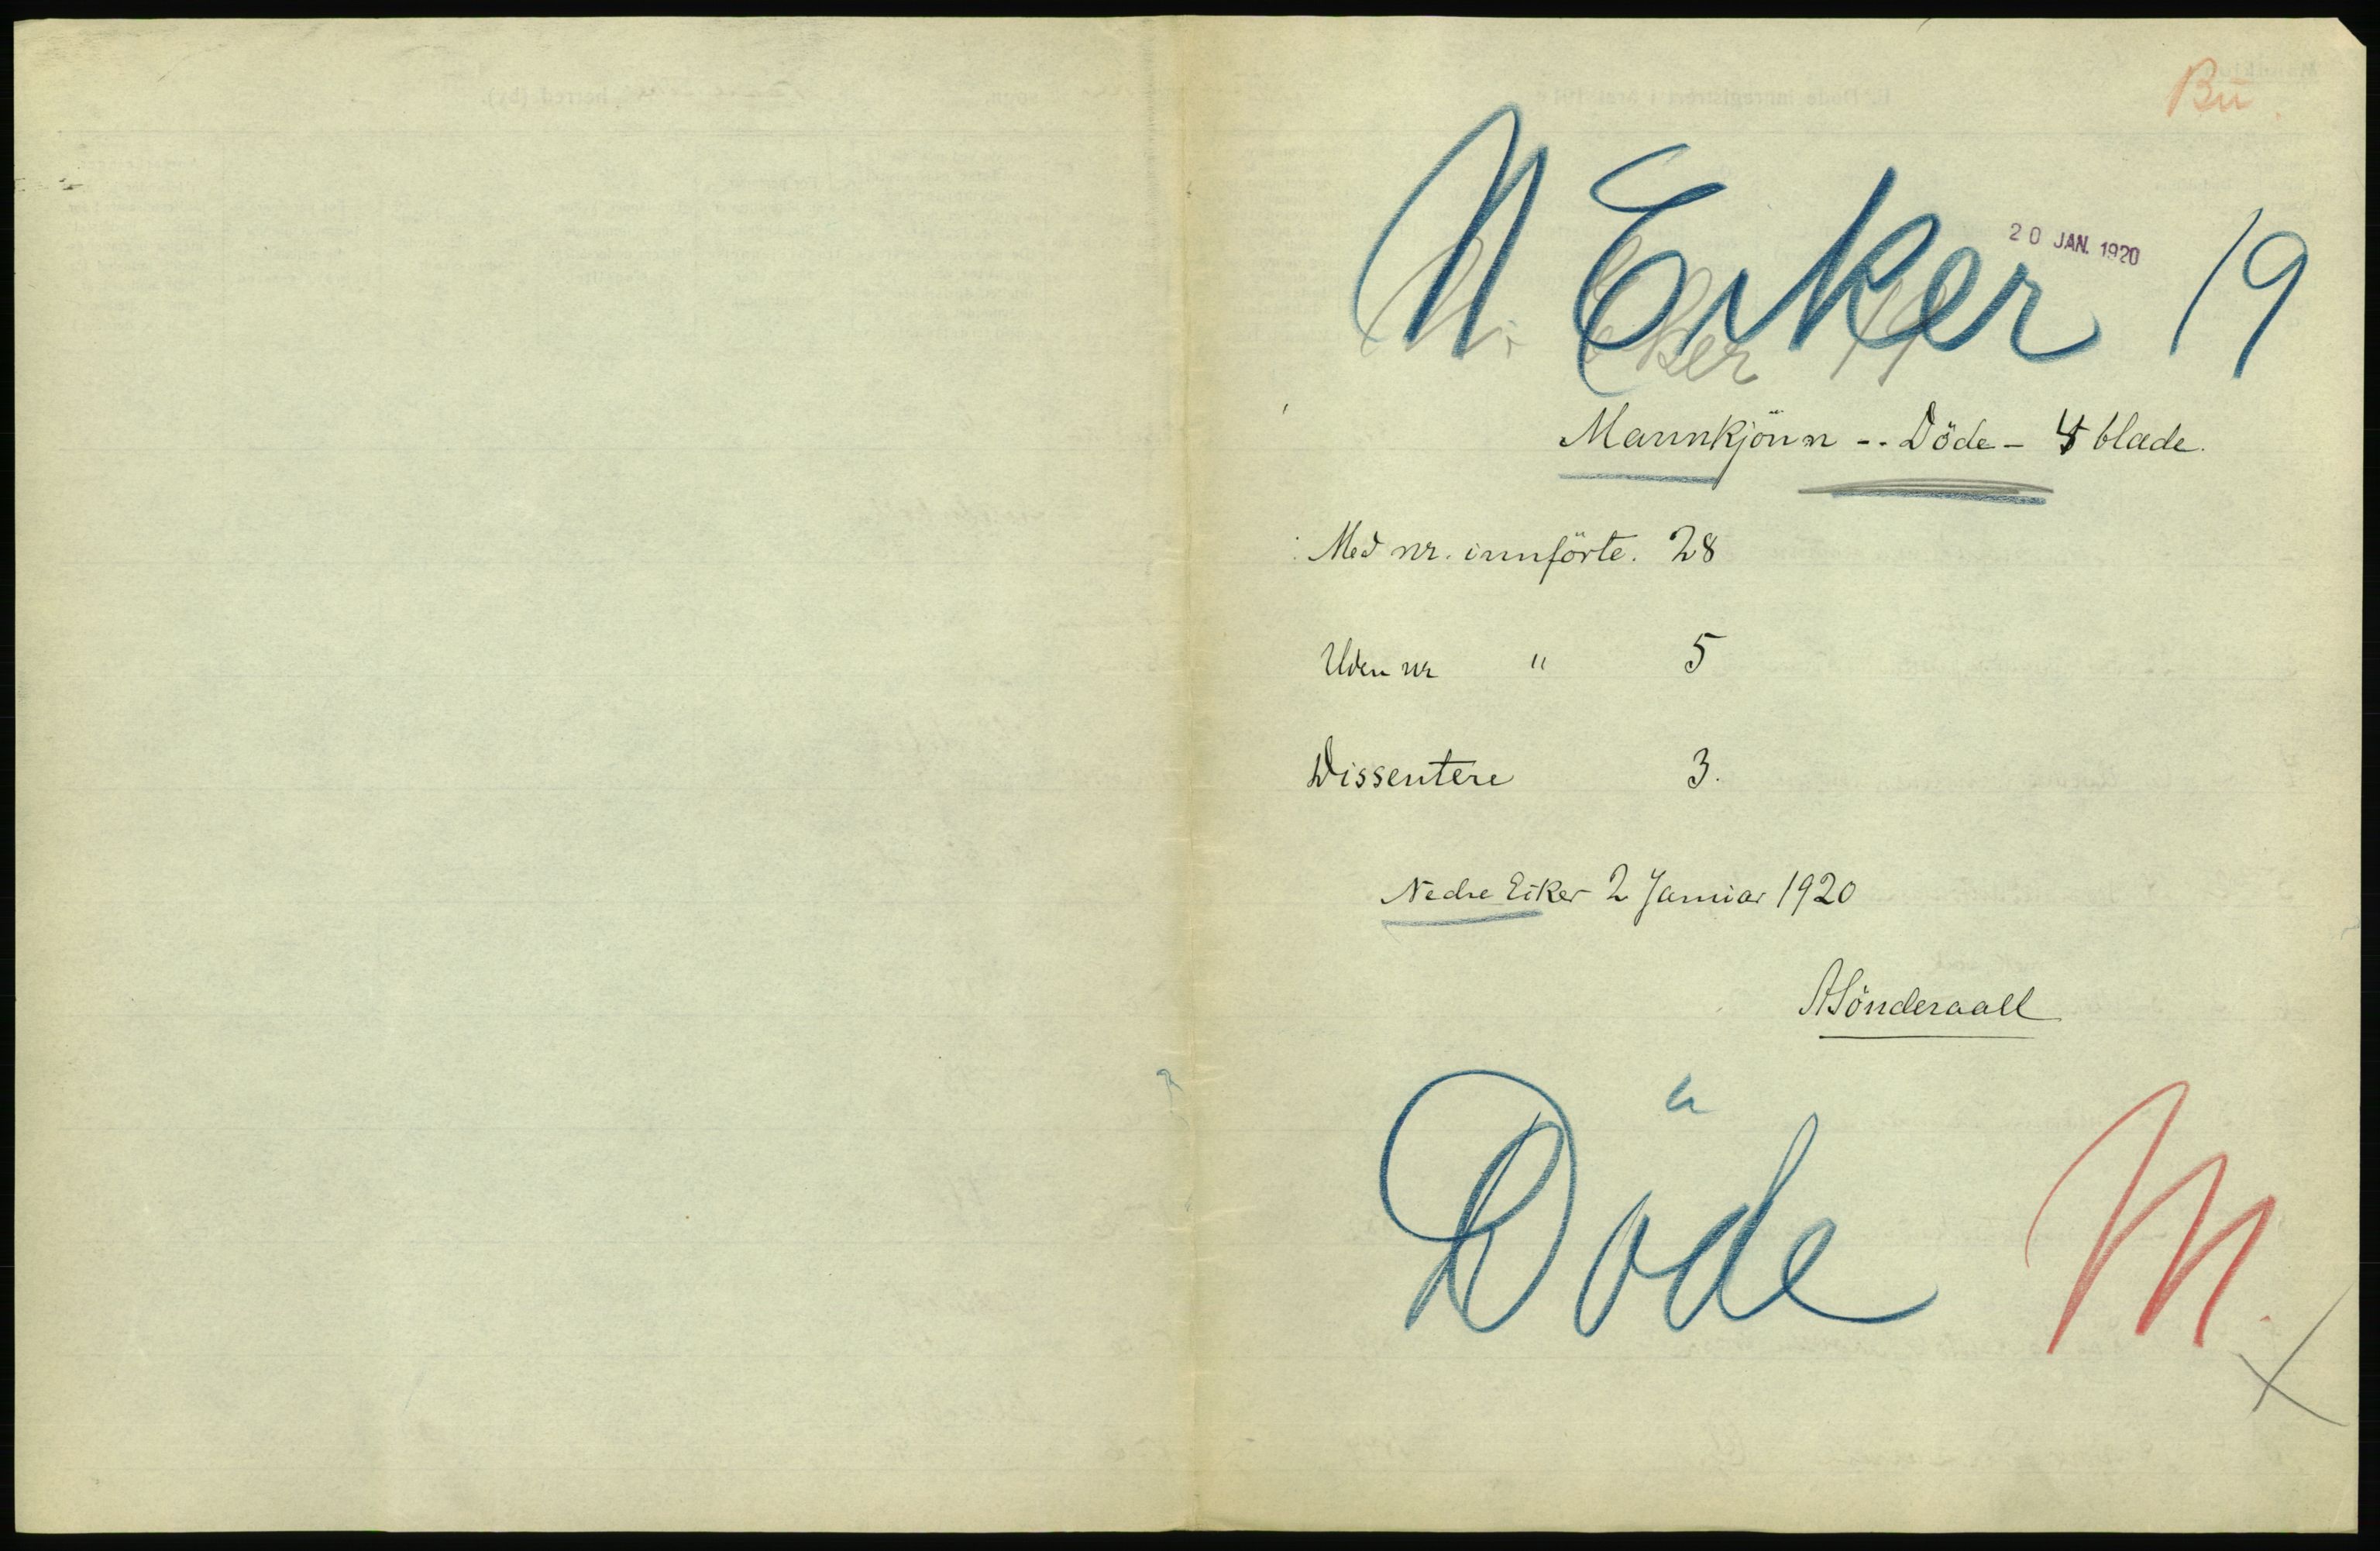 Bu.
N Eiker 19
20 JAN. 1920
N. Eiker 19
Mannkjönn -- Döde - 4 blade.
Med nr. innförte. 28
Uden nr " 5
Dissentere 3.
Nedre Eiker 2 Januar 1920
ASönderaall
Döde M.